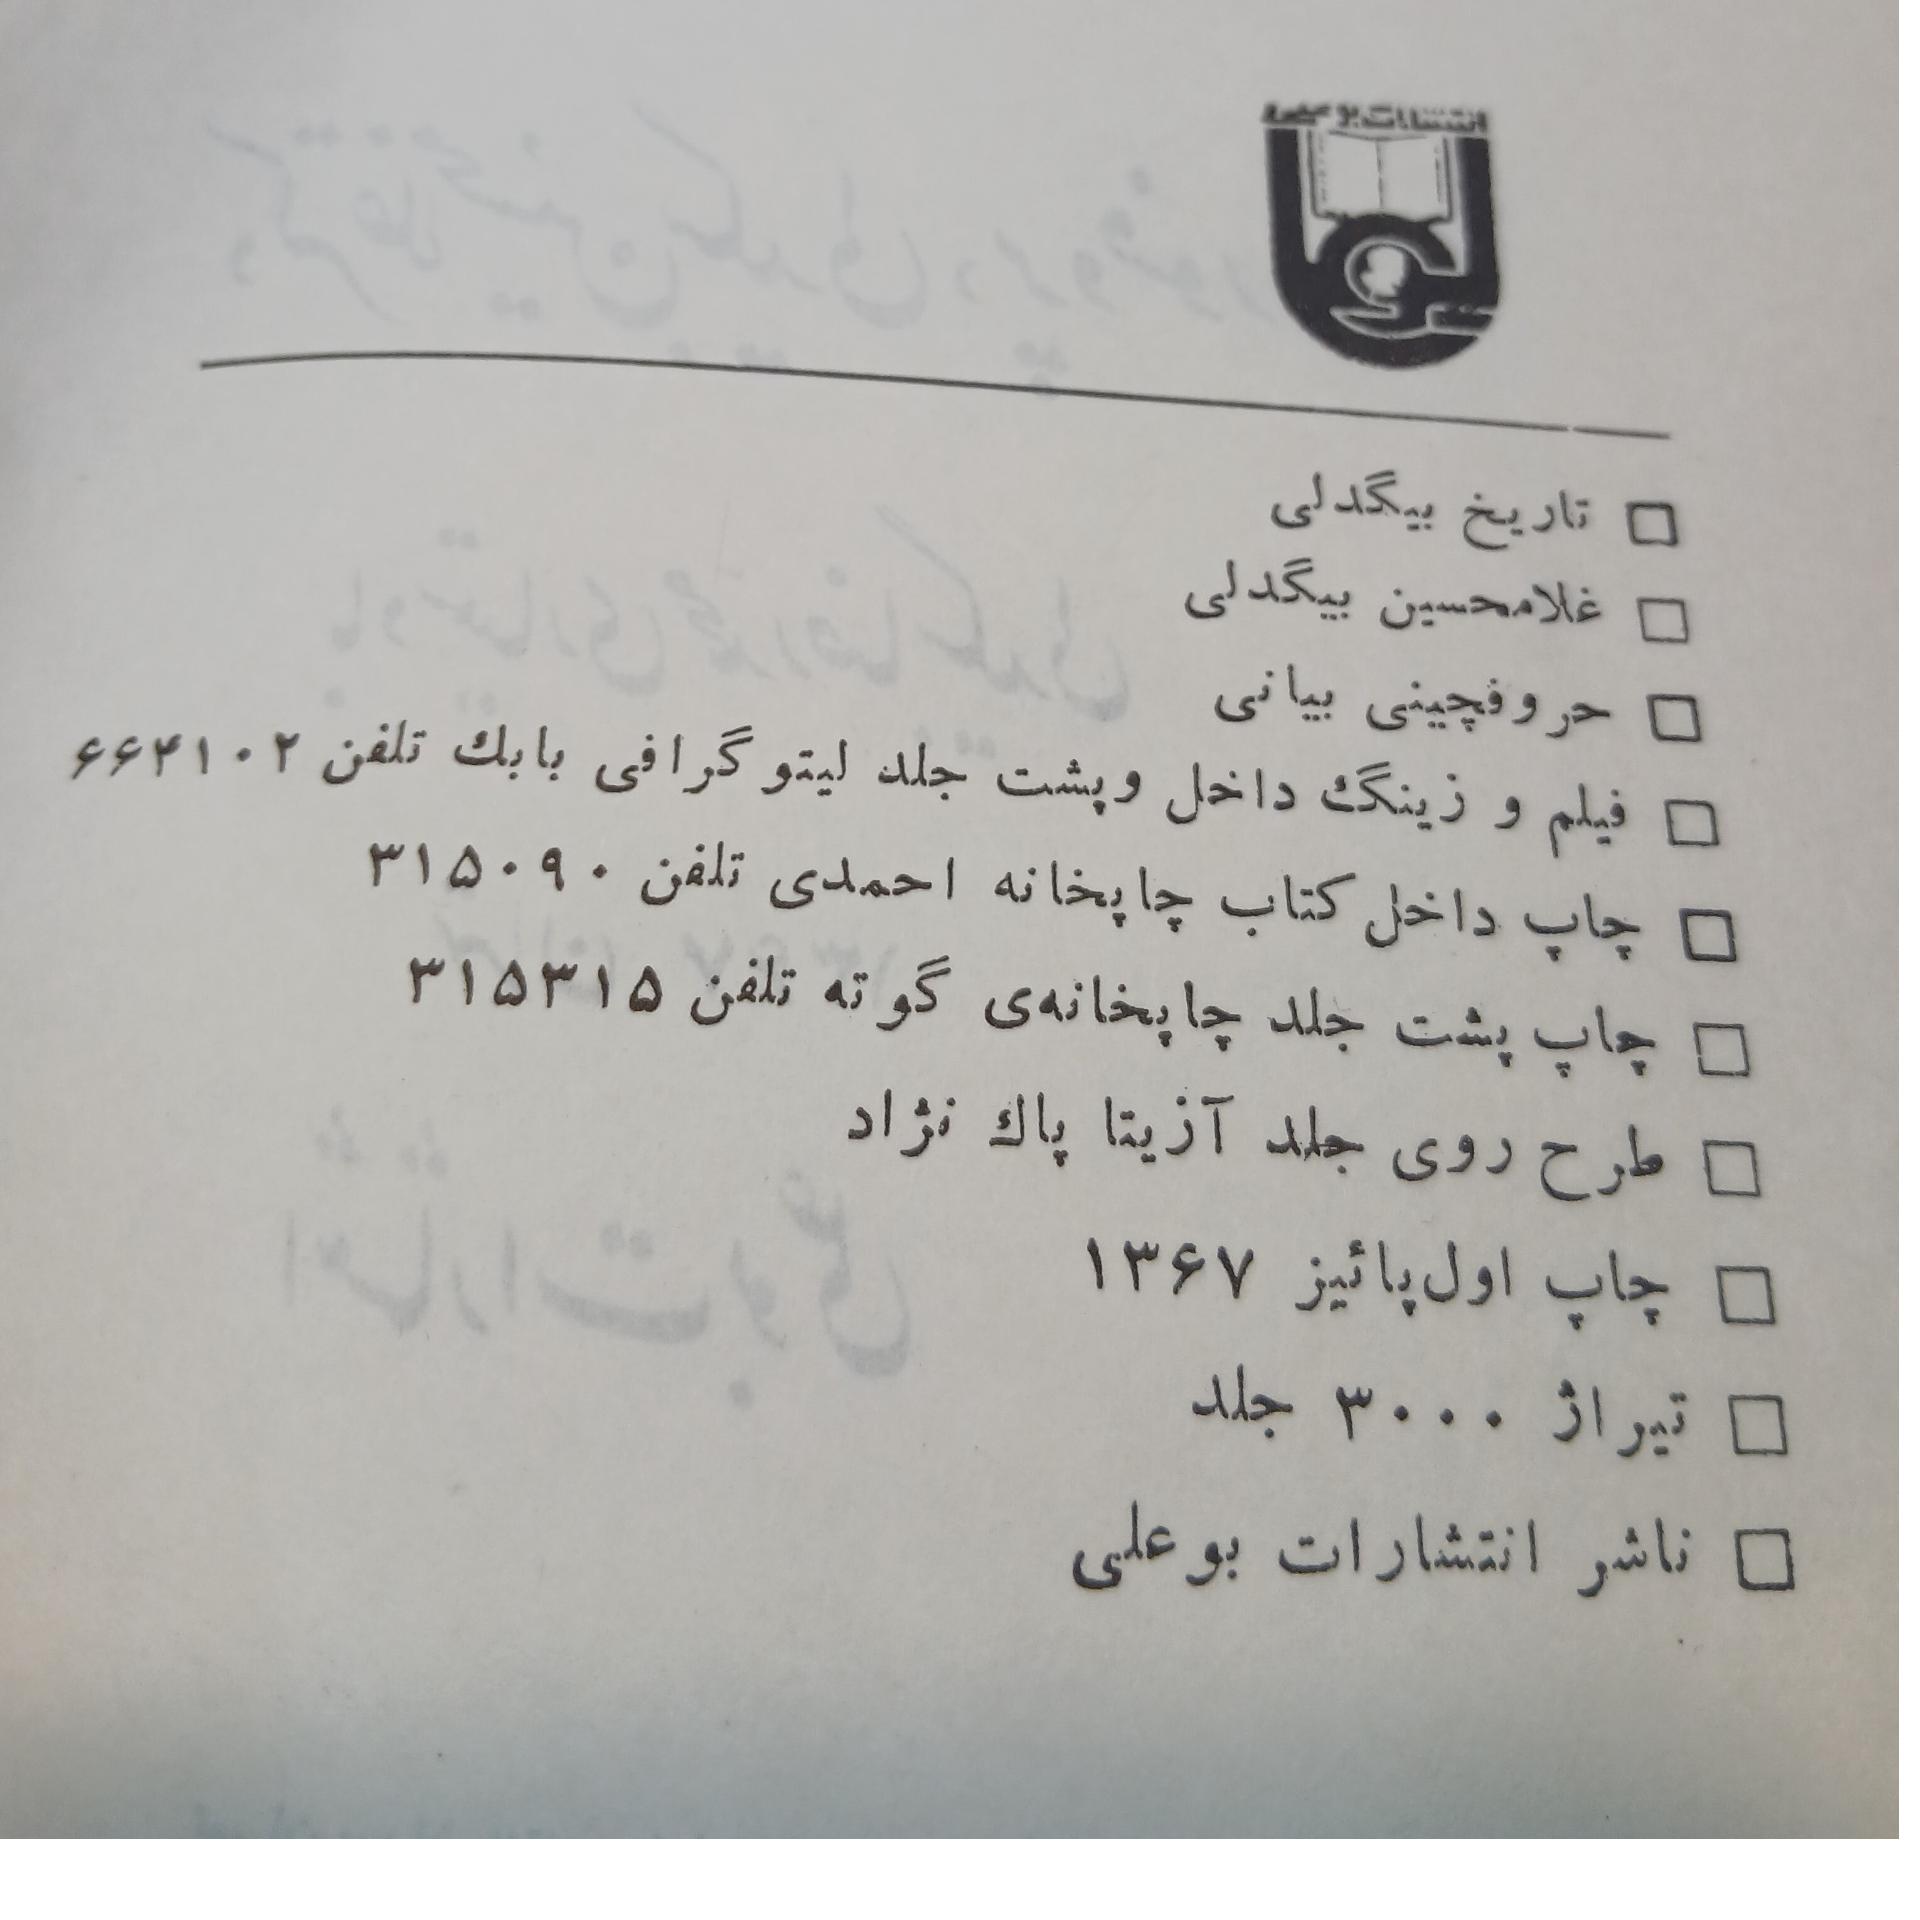 انتشارات بوعلی
□ تاریخ بیگدلی
□ غلامحسین بیگدلی
□ حروفچینی بیانی
□ فیلم و زینگ داخل وپشت جلد لیتوگرافی بابك تلفن ۶۶۴۱۰۲
□ چاپ داخل کتاب چاپخانه احمدی تلفن ۳۱۵۰۹۰
□ چاپ پشت جلد چاپخانه‌ی گوته تلفن ۳۱۵۳۱۵
□ طرح روی جلد آزیتا پاك نژاد
□ چاپ اول پائیز ۱۳۶۷
□ تیراژ ۳۰۰۰ جلد
□ ناشر انتشارات بوعلی